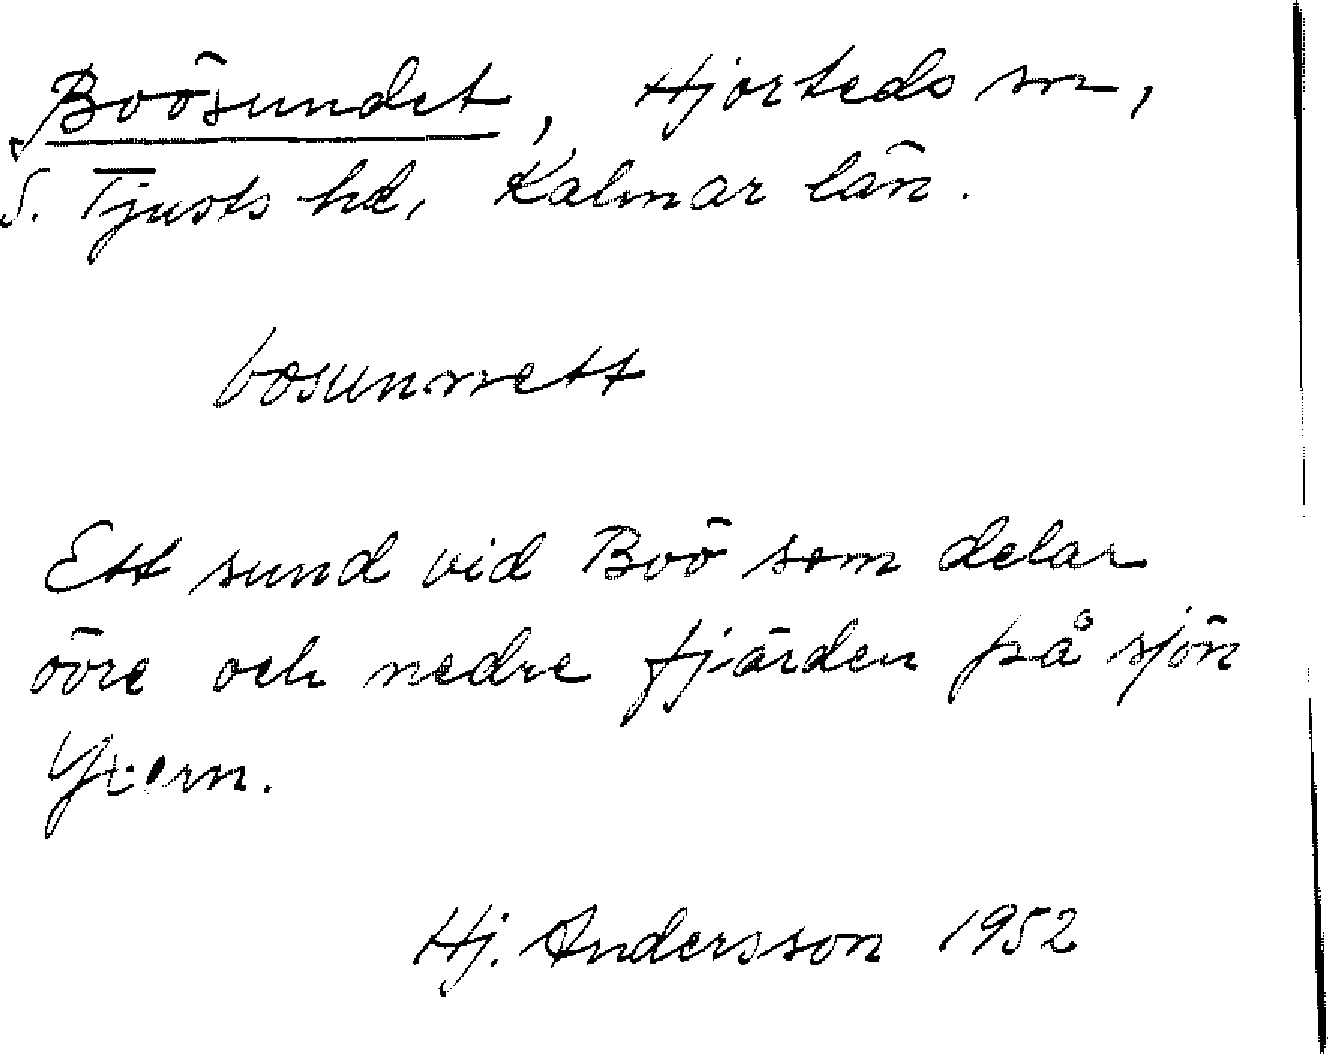 Boösundet, Hjorteds sn,
S. Tjusts hd, Kalmar län.
bosunnett
Ett sund vid Boö som delar
övre och nedre fjärden på sjön
Yxern.
Hj. Andersson 1952